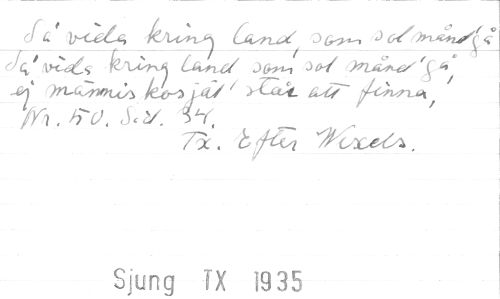 Så vida kring land, som sol månd' gå
Så vida kring land som sol månd' gå,
ej människosjäl står att finna,
Nr. 50. S. 34.
Tx. Efter Wexels.
Sjung TX 1935